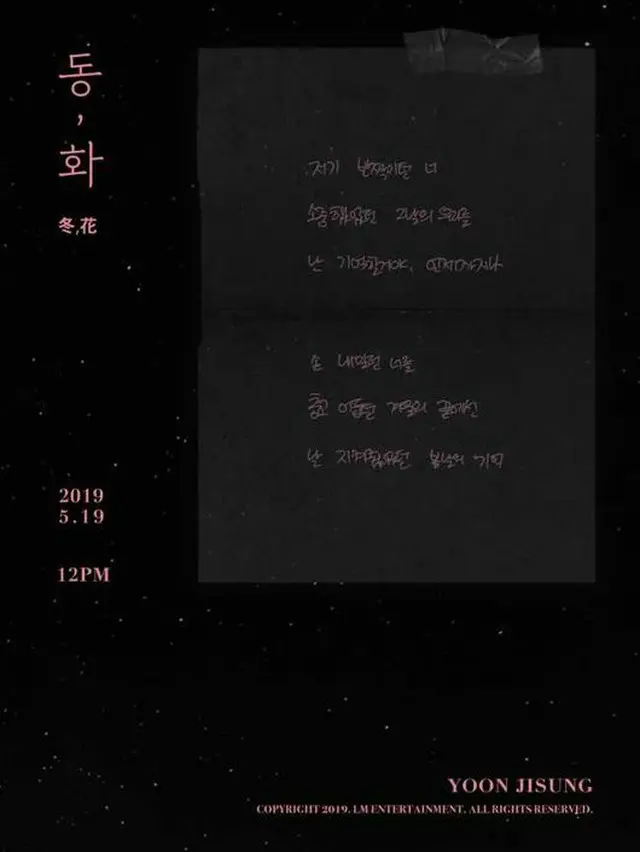 동,화
冬,花
저기 반짝이던 너
소중했었던 그날의 우리를
난 기억할거야, 언제까지나
손 내밀던 너를
춥고 어둡던 겨울의 끝에선
난 지켜줬었던 봄날의 기억
2019
5.19
12PM
YOON JISUNG
COPYRIGHT 2019. LM ENTERTAINMENT. ALL RIGHTS RESERVED.